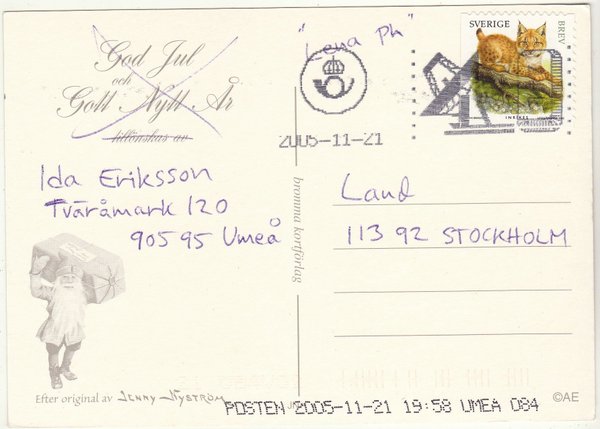 God Jul
och
Gott Nytt År
tillönskas av
Ida Eriksson
Tväråmark 120
905 95 Umeå
Efter original av Jenny Nyström
bromma kortförlag
"Lena Ph"
2005-11-21
SVERIGE
BREV
INRIKES
Land
113 92 STOCKHOLM
POSTEN 2005-11-21 19:58 UMEA 084
©AE